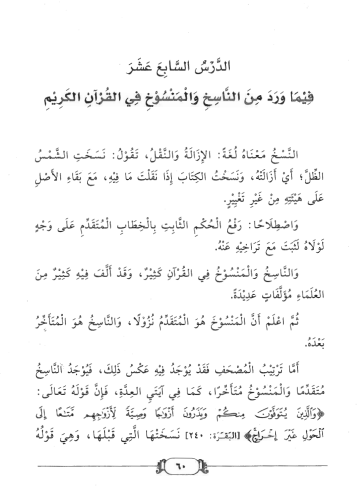 الدَّرْسُ السَّابِعَ عَشَرَ
فِيْمَا وَرَدَ مِنَ النَّاسِخِ وَالْمَنْسُوْخِ فِي القُرْآنِ الكَرِيْمِ
النَّسْخُ مَعْنَاهُ لُغَةً: الإِزَالَةُ وَالنَّقْلُ، تَقُوْلُ: نَسَخَتِ الشَّمْسُ
الظِّلَّ؛ أَيْ أَزَالَتْهُ، وَنَسَخْتُ الكِتَابَ إِذَا نَقَلْتَ مَا فِيْهِ، مَعَ بَقَاءِ الأَصْلِ
عَلَى هَيْئَتِهِ مِنْ غَيْرِ تَغْيِيْرٍ.
وَاصْطِلَاحًا: رَفْعُ الحُكْمِ الثَّابِتِ بِالْخِطَابِ المُتَقَدِّمِ عَلَى وَجْهٍ
لَوْلَاهُ لَثَبَتَ مَعَ تَرَاخِيْهِ عَنْهُ.
وَالنَّاسِخُ وَالْمَنْسُوْخُ فِي القُرْآنِ كَثِيْرٌ، وَقَدْ أَلَّفَ فِيْهِ كَثِيْرٌ مِنَ
العُلَمَاءِ مُؤَلَّفَاتٍ عَدِيْدَةً.
ثُمَّ اعْلَمْ أَنَّ الْمَنْسُوْخَ هُوَ الْمُتَقَدِّمُ نُزُوْلًا، وَالنَّاسِخُ هُوَ الْمُتَأَخِّرُ
بَعْدَهُ.
أَمَّا تَرْتِيْبُ الْمُصْحَفِ فَقَدْ يُوْجَدُ فِيْهِ عَكْسُ ذَلِكَ، فَيُوْجَدُ النَّاسِخُ
مُتَقَدِّمًا وَالْمَنْسُوْخُ مُتَأَخِّرًا، كَمَا فِي آيَتَيِ العِدَّةِ، فَإِنَّ قَوْلَهُ تَعَالَى:
﴿وَالَّذِينَ يُتَوَفَّوْنَ مِنكُمْ وَيَذَرُونَ أَزْوَاجًا وَصِيَّةً لِّأَزْوَاجِهِم مَّتَاعًا إِلَى
الْحَوْلِ غَيْرَ إِخْرَاجٍ﴾ [البَقَرَة: ٢٤٠] نَسَخَتْهَا الَّتِي قَبْلَهَا، وَهِيَ قَوْلُهُ
٦٠